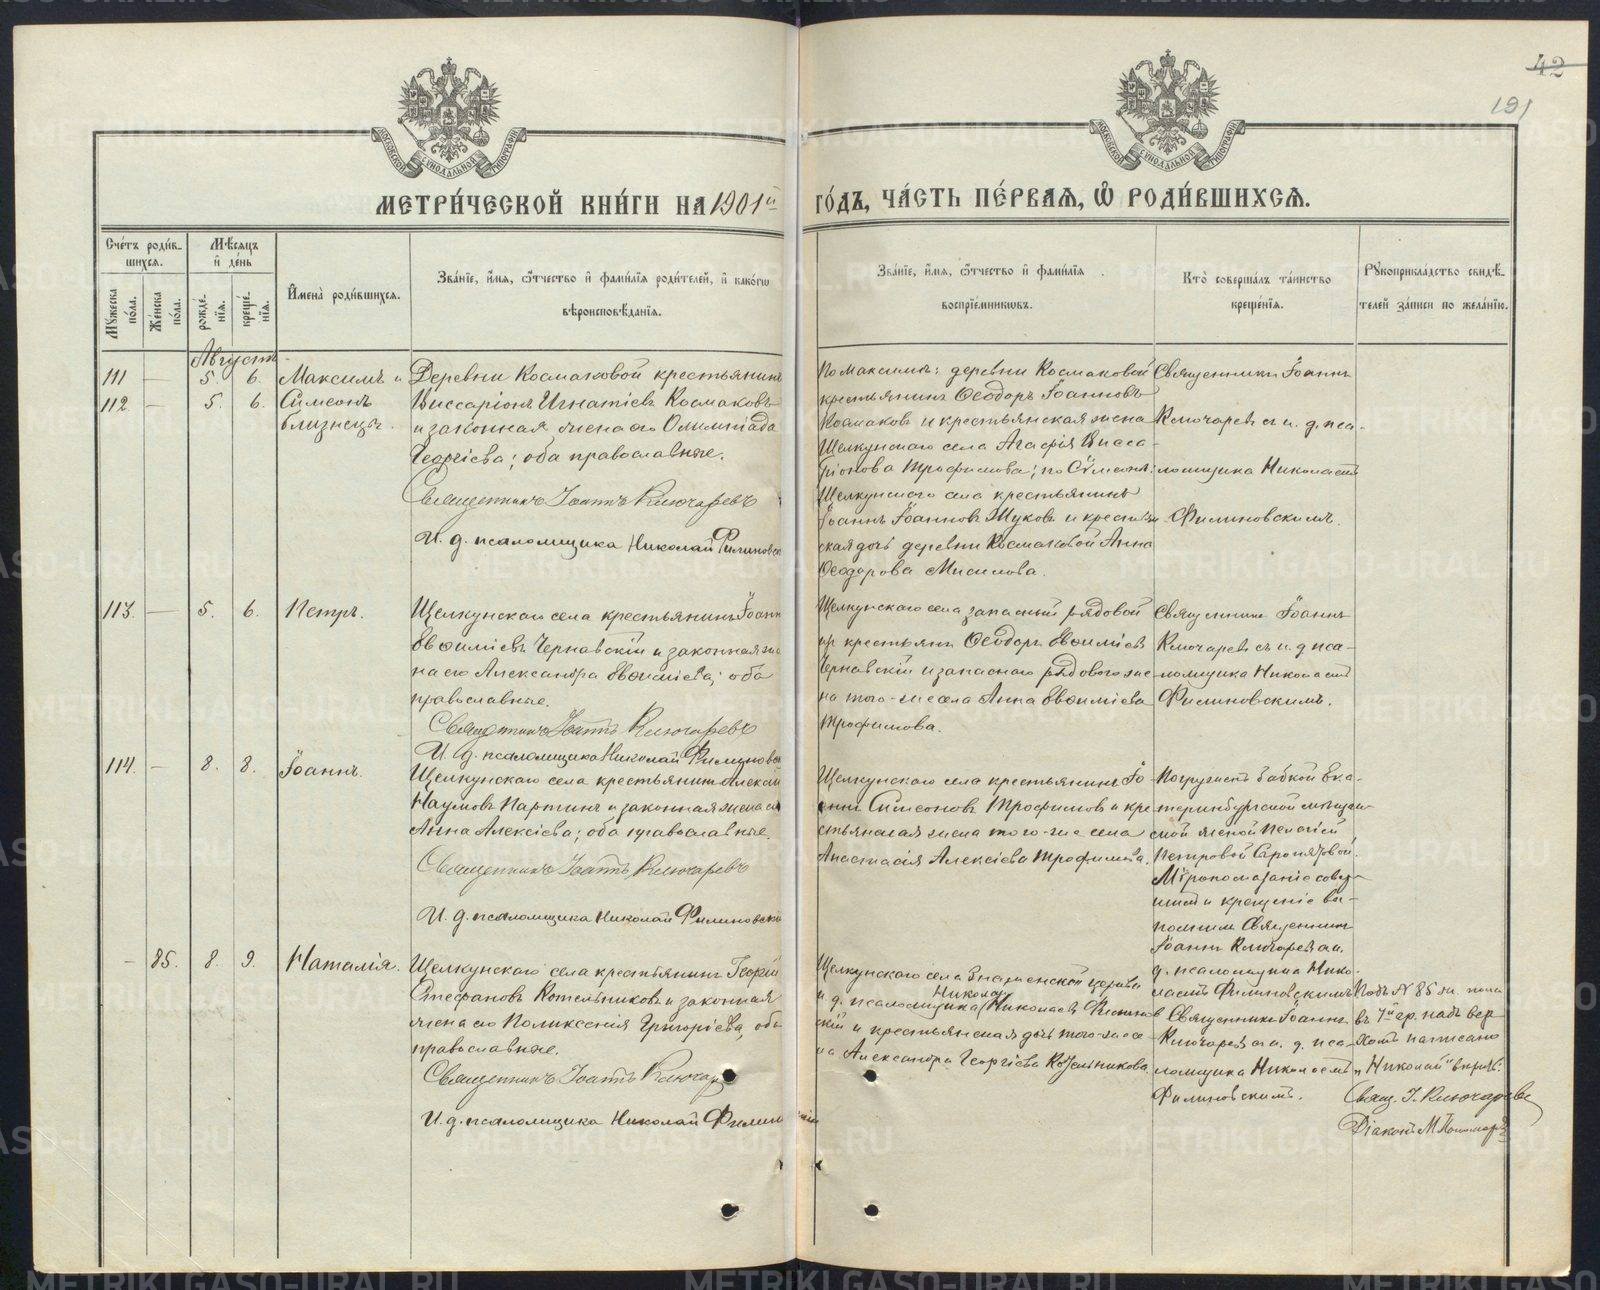 42
191
МОСКОВСКОЙ СУНОДАЛЬНОЙ ТИПОГРАФІИ
МОСКОВСКОЙ СУНОДАЛЬНОЙ ТИПОГРАФІИ
МЕТРИ́ЧЕСКОЙ КНИ́ГИ НА 1901й ГО́ДЪ, ЧА́СТЬ ПЕ́РВАЯ, Ѡ҆ РОДИ́ВШИХСЯ.
Сче́тъ роди́в-
шихся.
Мѣ́сяцъ
и҆ де́нь
Мꙋ́жеска
по́ла.
Же́нска
по́ла.
рожде́-
нїя.
креще́-
нїя.
И҆мена̀ роди́вшихся.
Зва́нїе, и҆́мя, ѻ҆́тчество и҆ фами́лїя роди́телей, и҆ како́гѡ
вѣроисповѣ́данїя.
Зва́нїе, и҆́мя, ѻ҆́тчество и҆ фами́лїя
воспрїе́мникѡвъ.
Кто̀ соверша́лъ та́инство
креще́нїя.
Рꙋкоприкла́дство свидѣ́-
телей за́писи по жела́нїю.
Августъ
111 — 5. 6. Максимъ и
112 — 5. 6. Сѵмеонъ
близнецы.
Деревни Космаковой крестьянинъ
Виссаріонъ Игнатіевъ Космаковъ
и законная жена его Олимпіада
Георгіева; оба православные.
Священникъ Іоаннъ Ключаревъ
И. д. псаломщика Николай Филиновск
По Максимѣ: деревни Космаковой
крестьянинъ Ѳеодоръ Іоанновъ
Космаковъ и крестьянская жена
Щелкунскаго села Агафія Висса-
ріонова Трофимова; по Сѵмеонѣ:
Щелкунскаго села крестьянинъ
Іоаннъ Іоанновъ Жуковъ и крестьян
ская дочь деревни Космаковой Анна
Ѳеодорова
Священникъ Іоаннъ
Ключаревъ съ и. д. пса-
ломщика Николаемъ
Филиновскимъ.
113. — 5. 6. Петръ.
Щелкунскаго села крестьянинъ Іоанн
Евѳиміевъ Чернавскій и законная же
на его Александра Евѳиміева; оба
православные.
Священникъ Іоаннъ Ключаревъ
И. д. псаломщика Николай Филиновск
Щелкунскаго села запасный рядовой
изъ крестьянъ Ѳеодоръ Евѳиміевъ
Чернавскій и запаснаго рядового же-
на того-же села Анна Евѳиміева
Трофимова.
Священникъ Іоаннъ
Ключаревъ съ и. д. пса-
ломщика Николаемъ
Филиновскимъ.
114. — 8. 8. Іоаннъ.
Щелкунскаго села крестьянинъ Алексій
Наумовъ Паргинъ и законная жена его
Анна Алексіева; оба православные.
Священникъ Іоаннъ Ключаревъ
И. д. псаломщика Николай Филиновск
Щелкунскаго села крестьянинъ Іо-
аннъ Симеоновъ Трофимовъ и кре-
стьянская жена того-же села
Анастасія Алексіева Трофимова.
Погруженъ бабкой Ека-
теринбургской мѣщан-
ской женой Пелагіей
Петровой
Мѵропомазаніе совер-
шилъ и крещеніе вы-
полнилъ Священникъ
Іоаннъ Ключаревъ съ и.
д. псаломщика Нико-
лаемъ Филиновскимъ
— 85. 8. 9. Наталія.
Щелкунскаго села крестьянинъ Георгій
Стефановъ Котельниковъ и законная
жена его Поликсенія Григоріева, оба
православные.
Священникъ Іоаннъ Ключар
И. д. псаломщика Николай Филин
Щелкунскаго села Знаменской церкви
Николай
и. д. псаломщика Николаевъ Филинов
скій и крестьянская дочь того-же се
ла Александра Георгіева Котельникова.
Священникъ Іоаннъ
Ключаревъ съ и. д. пса-
ломщика Николаемъ
Филиновскимъ.
Подъ № 85 ж. пола
въ 7й гр. надъ вер-
хомъ написано
„Николай" вѣрно:
Свящ. І. Ключаревъ
Діаконъ М. Пономарев